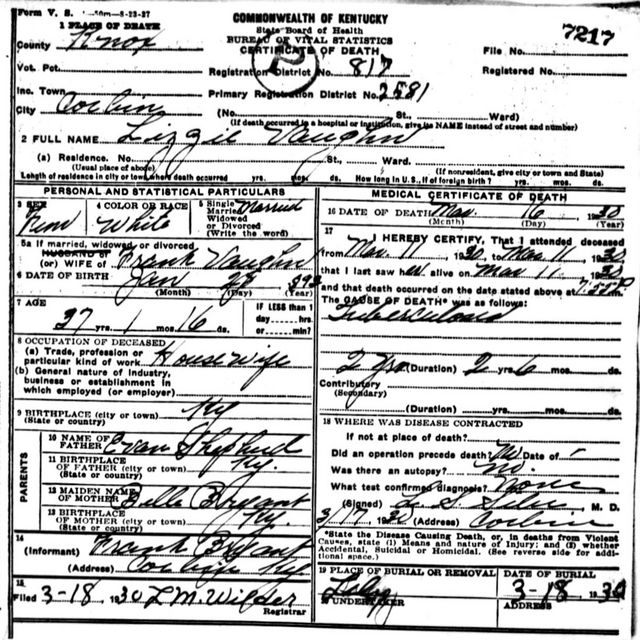 Form V. S. 1 -50m-8-23-27
COMMONWEALTH OF KENTUCKY
State Board of Health
BUREAU OF VITAL STATISTICS
CERTIFICATE OF DEATH
7217
1 PLACE OF DEATH
County Knox
File No.
Vot. Pct.
Registration District No. 817
Registered No.
Inc. Town
Primary Registration District No. 2581
City Corbin
(No. St., Ward)
(If death occurred in a hospital or institution, give its NAME instead of street and number)
2 FULL NAME Lizzie Vaughn
(a) Residence. No. St., Ward.
(Usual place of abode) (If nonresident, give city or town and State)
Length of residence in city or town where death occurred yrs. mos. ds. How long in U.S., if of foreign birth? yrs. mos. ds.
PERSONAL AND STATISTICAL PARTICULARS
3 SEX Fem
4 COLOR OR RACE White
5 Single Married Widowed or Divorced (Write the word) Married
5a If married, widowed or divorced
HUSBAND of
(or) WIFE of Frank Vaughn
6 DATE OF BIRTH Jan
(Month) (Day) (Year)
7 AGE
37 yrs. 1 mos. 16 ds.
IF LESS than 1
day hrs.
or min.
8 OCCUPATION OF DECEASED
(a) Trade, profession or
particular kind of work House Wife
(b) General nature of Industry,
business or establishment in
which employed (or employer)
9 BIRTHPLACE (city or town) Ky
(State or country)
PARENTS
10 NAME OF
FATHER Evan Shepherd
11 BIRTHPLACE
OF FATHER (city or town) Ky.
(State or country)
12 MAIDEN NAME
OF MOTHER Belle Bryant
13 BIRTHPLACE
OF MOTHER (city or town) Ky.
(State or country)
14
(Informant) Frank Bryant
(Address) Corbin Ky.
15
Filed 3-18 1930 L M Wilder
Registrar
MEDICAL CERTIFICATE OF DEATH
16 DATE OF DEATH Mar. 16 1930
(Month) (Day) (Year)
17
I HEREBY CERTIFY, That I attended deceased
from Mar. 11 1930, to Mar. 11 1930
that I last saw her alive on Mar 11 1930
and that death occurred on the date stated above at 7:55 P
The CAUSE OF DEATH* was as follows:
Tuberculosis
2 yrs (Duration) 2 yrs 6 mos. ds.
Contributory
(Secondary)
(Duration) yrs. mos. ds.
18 WHERE WAS DISEASE CONTRACTED
If not at place of death?
Did an operation precede death? No Date of
Was there an autopsy? no.
What test confirmed diagnosis? None
(Signed) M. D.
3/17 1930 (Address) Corbin
*State the Disease Causing Death, or, in deaths from Violent
Causes, state (1) Means and nature of Injury; and (2) whether
Accidental, Suicidal or Homicidal. (See reverse side for addi-
tional space.)
19 PLACE OF BURIAL OR REMOVAL
DATE OF BURIAL
3-18-1930
20 UNDERTAKER
ADDRESS